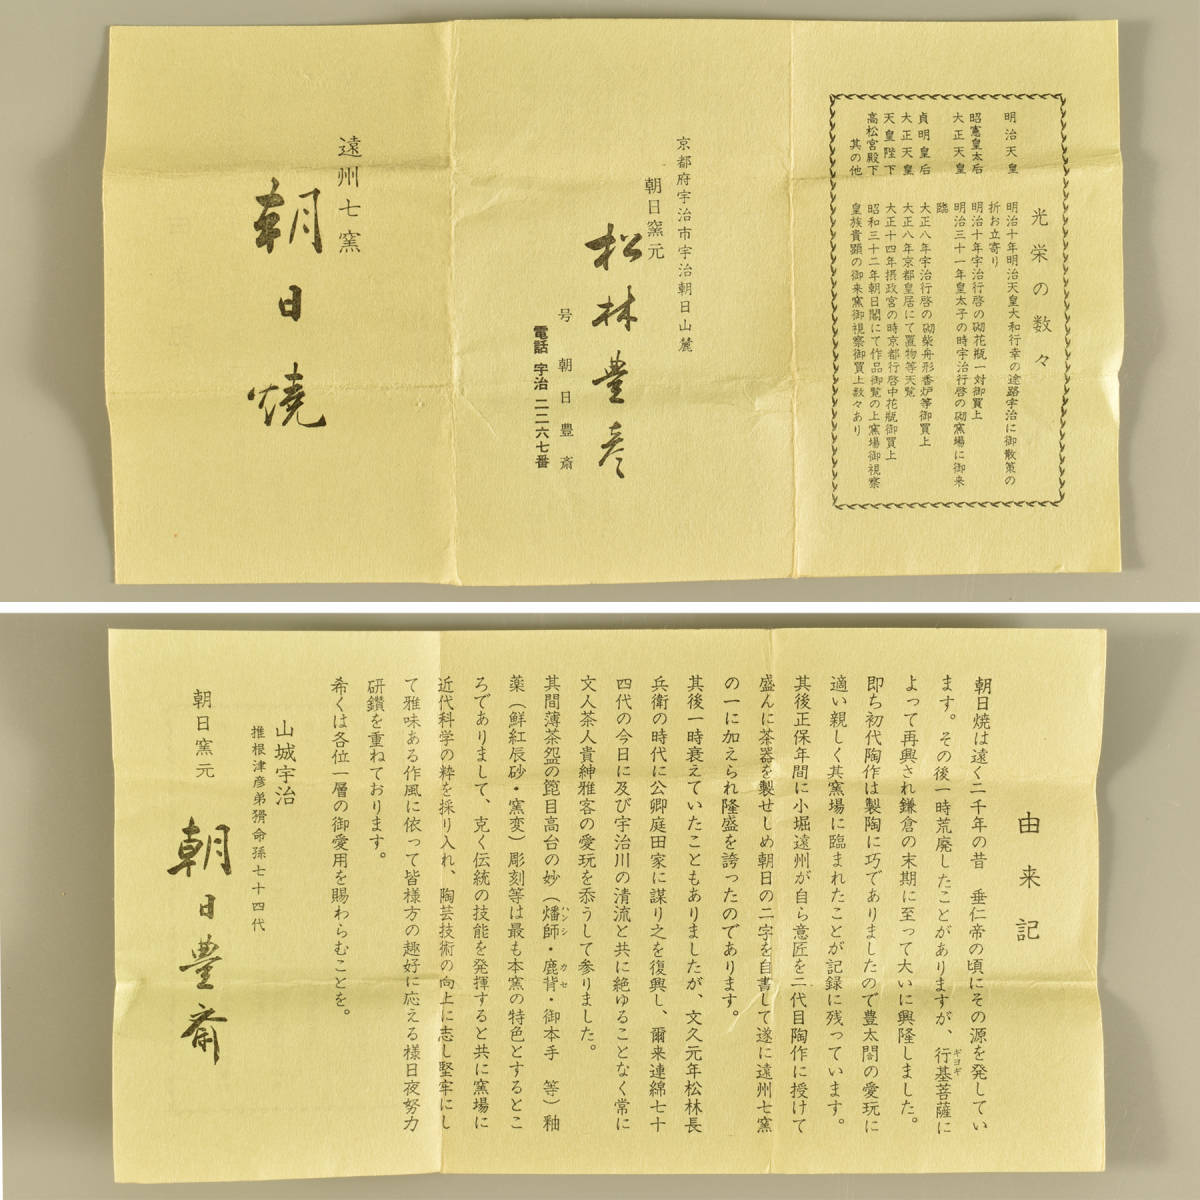 光栄の数々
明治天皇　明治十年明治天皇大和行幸の途路宇治に御散策の
折お立寄り
昭憲皇太后　明治十年宇治行啓の砌花瓶一対御買上
大正天皇　明治三十一年皇太子の時宇治行啓の砌窯場に御来
臨
貞明皇后　大正八年宇治行啓の砌柴舟形香炉等御買上
大正天皇　大正八年京都皇居にて置物等天覧
天皇陛下　大正十四年摂政宮の時京都行啓中花瓶御買上
高松宮殿下　昭和三十二年朝日閣にて作品御覧の上窯場御視察
其の他　皇族貴顕の御来窯御視察御買上数々あり
京都府宇治市宇治朝日山麓
朝日窯元
松林豊彦
号　朝日豊斎
電話　宇治　二二六七番
遠州七窯
朝日焼
由来記
朝日焼は遠く二千年の昔　垂仁帝の頃にその源を発してい
ます。その後一時荒廃したことがありますが、行基菩薩に
ギヨギ
よって再興され鎌倉の末期に至って大いに興隆しました。
即ち初代陶作は製陶に巧でありましたので豊太閤の愛玩に
適い親しく其窯場に臨まれたことが記録に残っています。
其後正保年間に小堀遠州が自ら意匠を二代目陶作に授けて
盛んに茶器を製せしめ朝日の二字を自書して遂に遠州七窯
の一に加えられ隆盛を誇ったのであります。
其後一時衰えていたこともありましたが、文久元年松林長
兵衛の時代に公卿庭田家に謀り之を復興し、爾来連綿七十
四代の今日に及び宇治川の清流と共に絶ゆることなく常に
文人茶人貴紳雅客の愛玩を忝うして参りました。
其間薄茶盌の箆目高台の妙（燔師・鹿背・御本手　等）釉
ハンシ　カセ
薬（鮮紅辰砂・窯変）彫刻等は最も本窯の特色とするとこ
ろでありまして、克く伝統の技能を発揮すると共に窯場に
近代科学の粋を採り入れ、陶芸技術の向上に志し堅牢にし
て雅味ある作風に依って皆様方の趣好に応える様日夜努力
研鑽を重ねております。
希くは各位一層の御愛用を賜わらむことを。
山城宇治
推根津彦弟猾命孫七十四代
朝日窯元　朝日豊斎